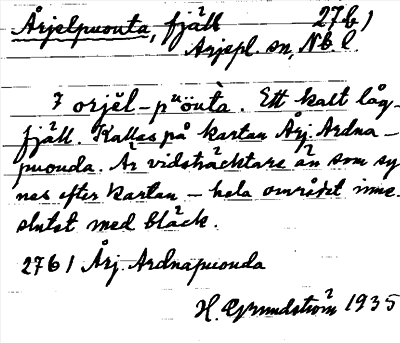 Årjelpuouta, fjäll 27b1
Arjepl. sn, Nb. l.
7 orjĕl-pᵘöutà. Ett kalt låg-
fjäll. Kallas på kartan Årj. Ardna-
puouda. Är vidsträcktare än som sy-
nes efter kartan – hela området inne-
slutet med bläck.
27b1 Årj. Ardnapuouda
H. Grundström 1935